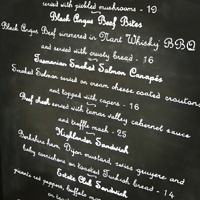 served with pickled mushrooms - 19
Black Angus Beef Bites
Black Angus Beef simmered in Nant Whisky BBQ
and served with crusty bread - 16
Tasmanian Smoked Salmon Canapés
Smoked Salmon served on cream cheese coated croutons
and topped with capers - 16
Beef cheek served with tamar valley cabernet sauce
and truffle mash - 25
Highlander Sandwich
Berkshire ham, Dijon mustard, swiss gruyere and
baby cornichons on toasted Turkish bread - 14
Estate Club Sandwich
peppers, buffalo
on